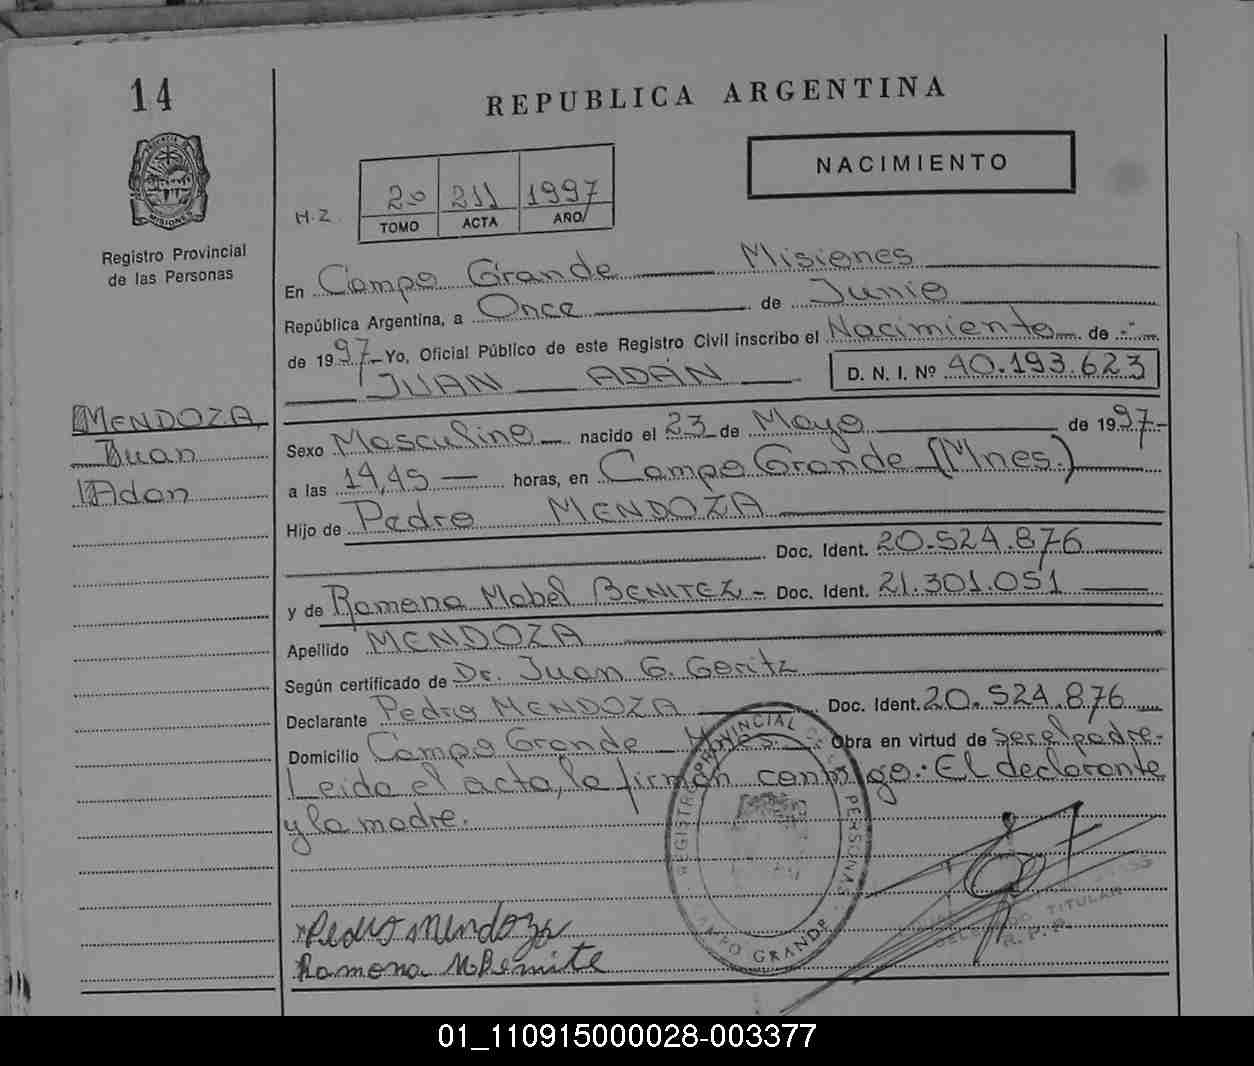 14
REPUBLICA ARGENTINA
NACIMIENTO
MISIONES
Registro Provincial
de las Personas
H.Z.
20 211 1997
TOMO ACTA AÑO
En Campo Grande Misiones
República Argentina, a Once de Junio
de 1997 Yo, Oficial Público de este Registro Civil inscribo el Nacimiento de
JUAN ADÁN D. N. I. Nº 40.193.623
MENDOZA,
Juan
Adan
Sexo Masculino nacido el 23 de Mayo de 1997-
a las 14,45 horas, en Campo Grande (Mnes.)
Hijo de Pedro MENDOZA
Doc. Ident. 20.524.876
y de Ramona Mabel BENITEZ - Doc. Ident. 21.301.051
Apellido MENDOZA
Según certificado de Dr. Juan G. Geritz
Declarante Pedro MENDOZA Doc. Ident. 20.524.876
Domicilio Campo Grande - Mnes. Obra en virtud de ser el padre.-
Leida el acta, la firman conmigo: El declarante
y la madre.
REGISTRO PROVINCIAL DE LAS PERSONAS
CAMPO GRANDE
Pedro Mendoza
Ramona M Benite
TITULAR
R. P. P.
01_110915000028-003377